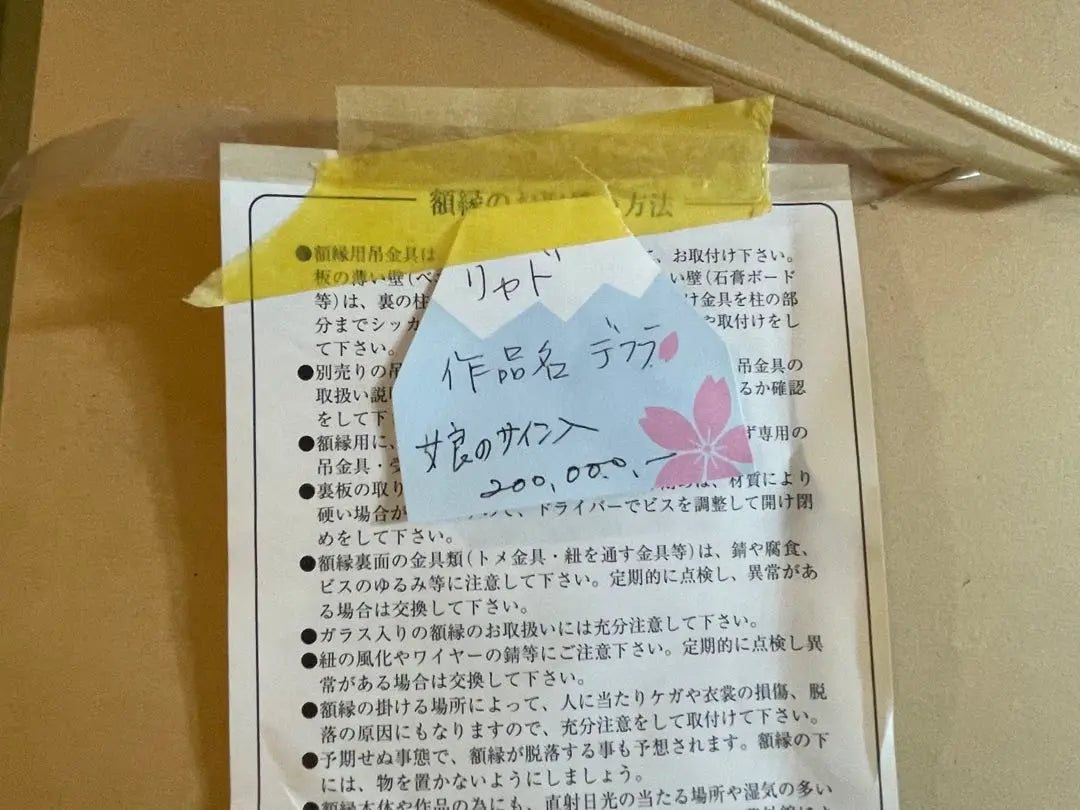 額縁のお取 方法
●額縁用吊金具は 、お取付け下さい。
板の薄い壁(ベ い壁(石膏ボード
等)は、裏の柱 け金具を柱の部
分までシッカ や取付けをし
て下さい。
●別売りの吊 吊金具の
取扱い説明 るか確認
をして下
●額縁用に、 ず専用の
吊金具・受
●裏板の取り 、材質により
硬い場合が 、ドライバーでビスを調整して開け閉
めをして下さい。
●額縁裏面の金具類(トメ金具・紐を通す金具等)は、錆や腐食、
ビスのゆるみ等に注意して下さい。定期的に点検し、異常があ
る場合は交換して下さい。
●ガラス入りの額縁のお取扱いには充分注意して下さい。
●紐の風化やワイヤーの錆等にご注意下さい。定期的に点検し異
常がある場合は交換して下さい。
●額縁の掛ける場所によって、人に当たりケガや衣裳の損傷、脱
落の原因にもなりますので、充分注意をして取付けて下さい。
●予期せぬ事態で、額縁が脱落する事も予想されます。額縁の下
には、物を置かないようにしましょう。
●額縁本体や作品の為にも、直射日光の当たる場所や湿気の多い
リャド
作品名 デフテ
娘のサイン入
200,000,-